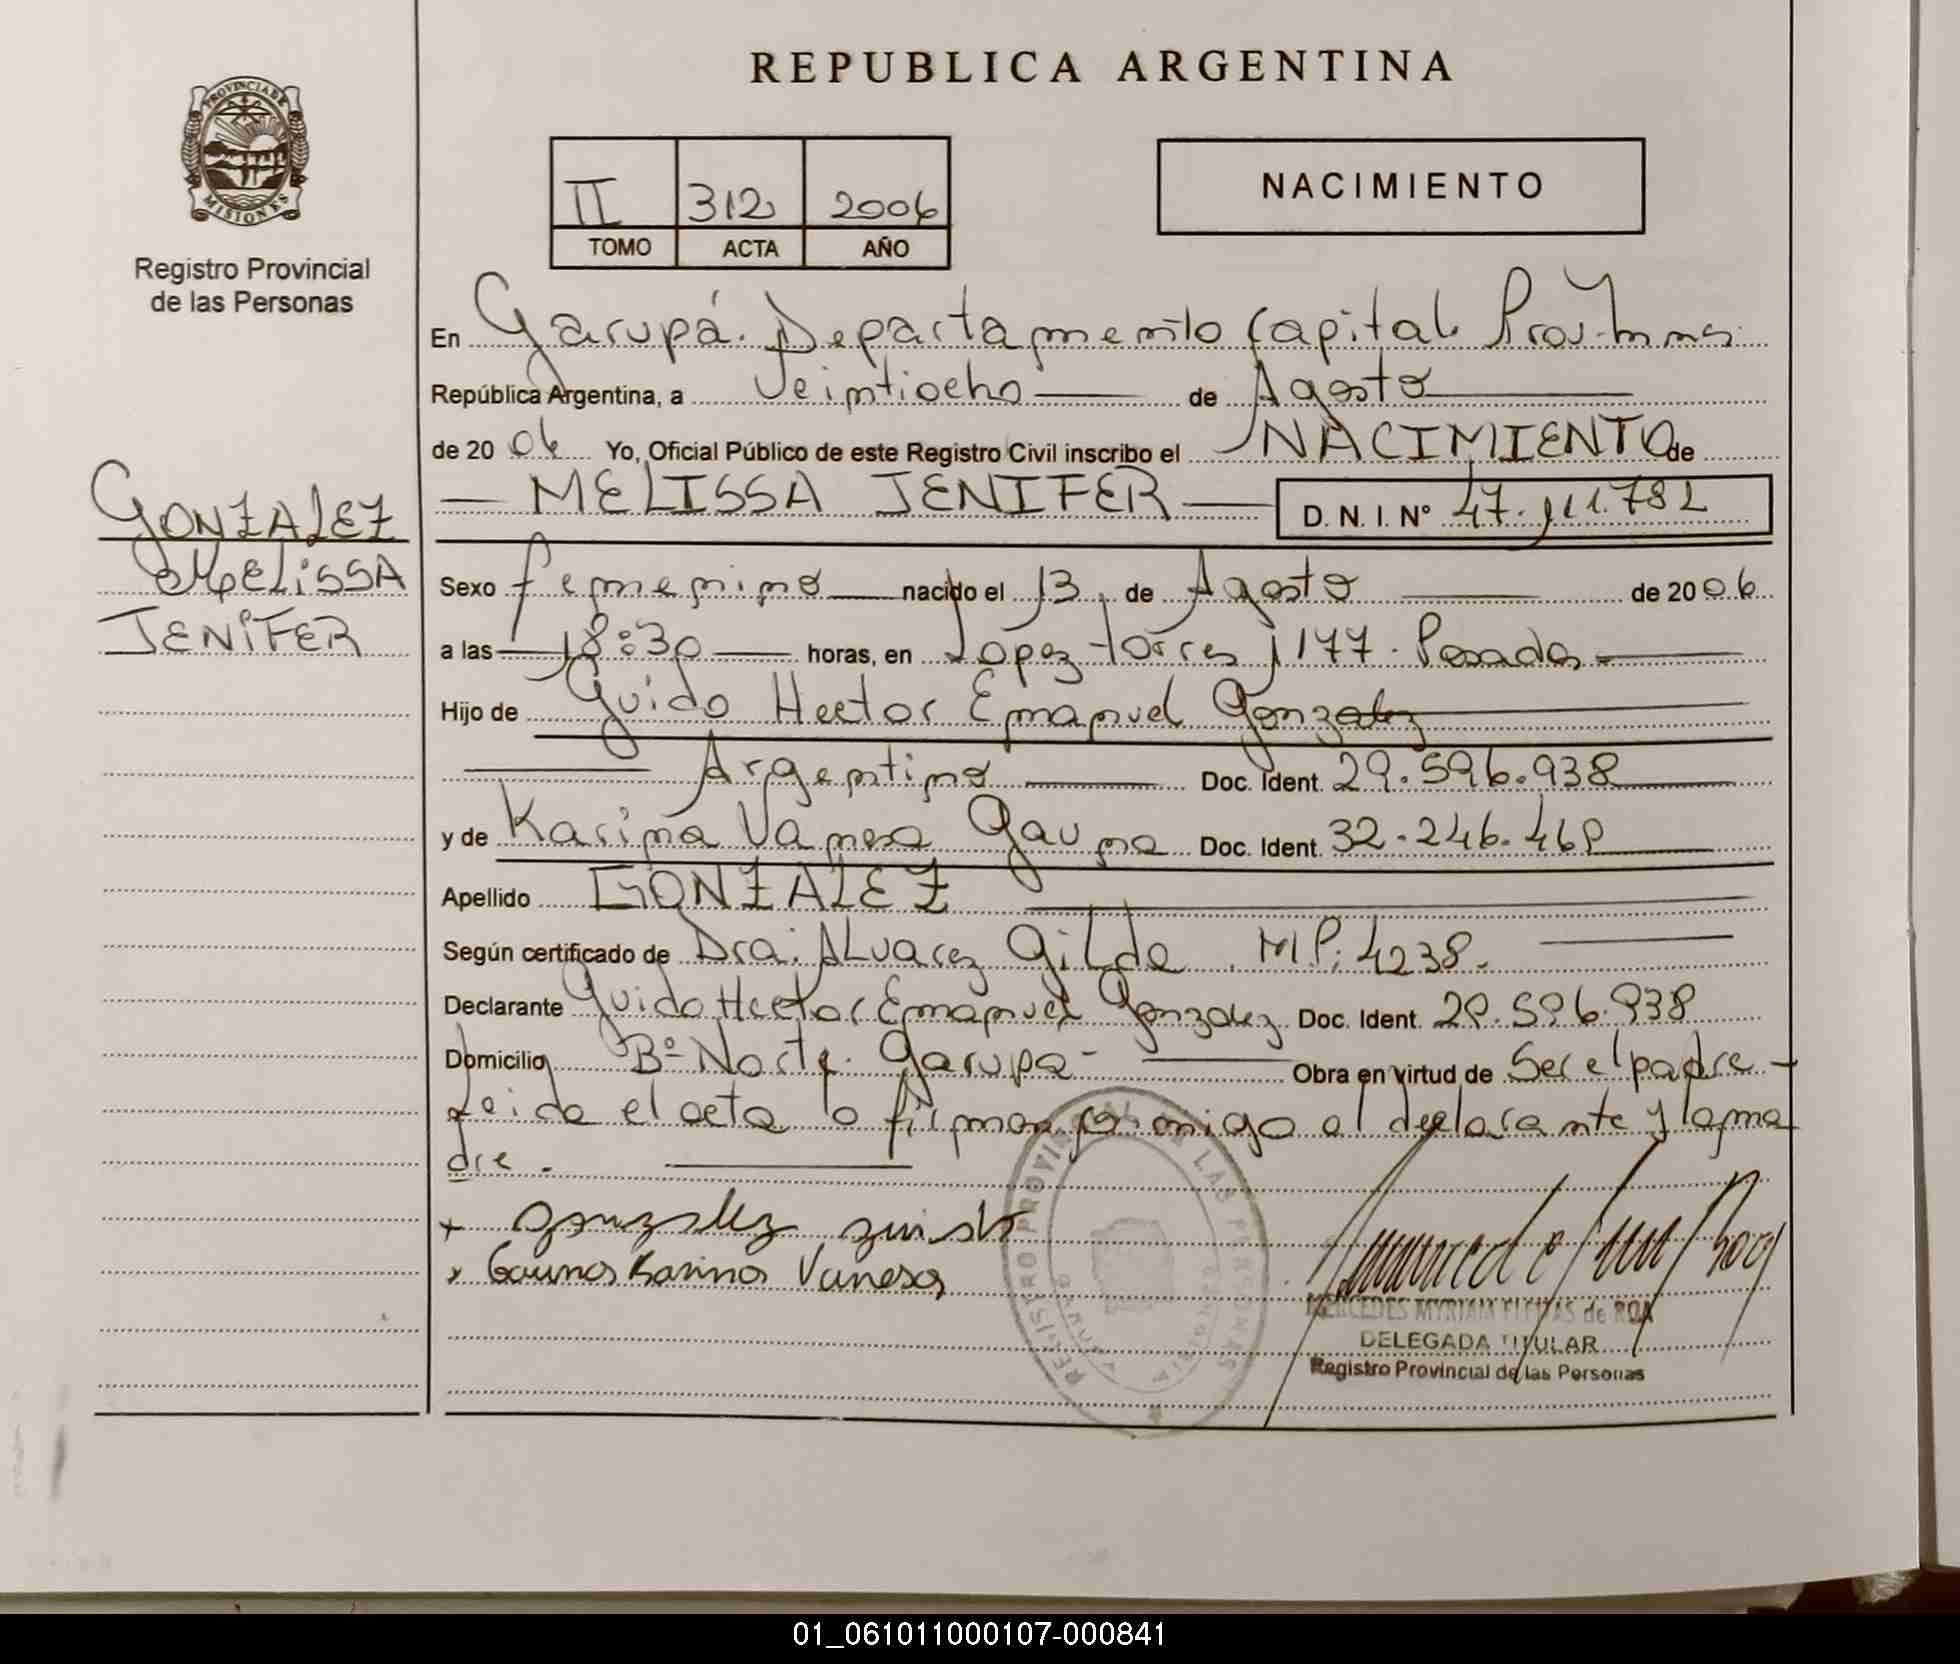 REPUBLICA ARGENTINA
PROVINCIA DE
MISIONES
Registro Provincial
de las Personas
II 312 2006
TOMO ACTA AÑO
NACIMIENTO
En Garupá. Departamento Capital Prov. Mnes.
República Argentina, a Veintiocho de Agosto
de 2006 Yo, Oficial Público de este Registro Civil inscribo el NACIMIENTO de
MELISSA JENIFER D. N. I. Nº 47.111.782
GONZALEZ
MELiSSA
JENiFER
Sexo femenino nacido el 13 de Agosto de 2006
a las 18:30 horas, en Lopez torres 1177. Posadas
Hijo de Guido Hector Emanuel Gonzalez
Argentino Doc. Ident. 29.596.938
y de Karina Vanesa Gauna Doc. Ident. 32.246.468
Apellido GONZALEZ
Según certificado de Dra. ALvarez GiLda. M P: 4238.
Declarante Guido Hector Emanuel Gonzalez Doc. Ident. 29.596.938
Domicilio Bº Norte. Garupa- Obra en virtud de Ser el padre -
Leida el acta lo firman conmigo el declarante y la ma
dre.
x Gonzalez Guido
x Gauna Karina Vanesa
REGISTRO PROVINCIAL DE LAS PERSONAS
MERCEDES MYRIAM FLEITAS de ROA
DELEGADA TITULAR
Registro Provincial de las Personas
01_061011000107-000841